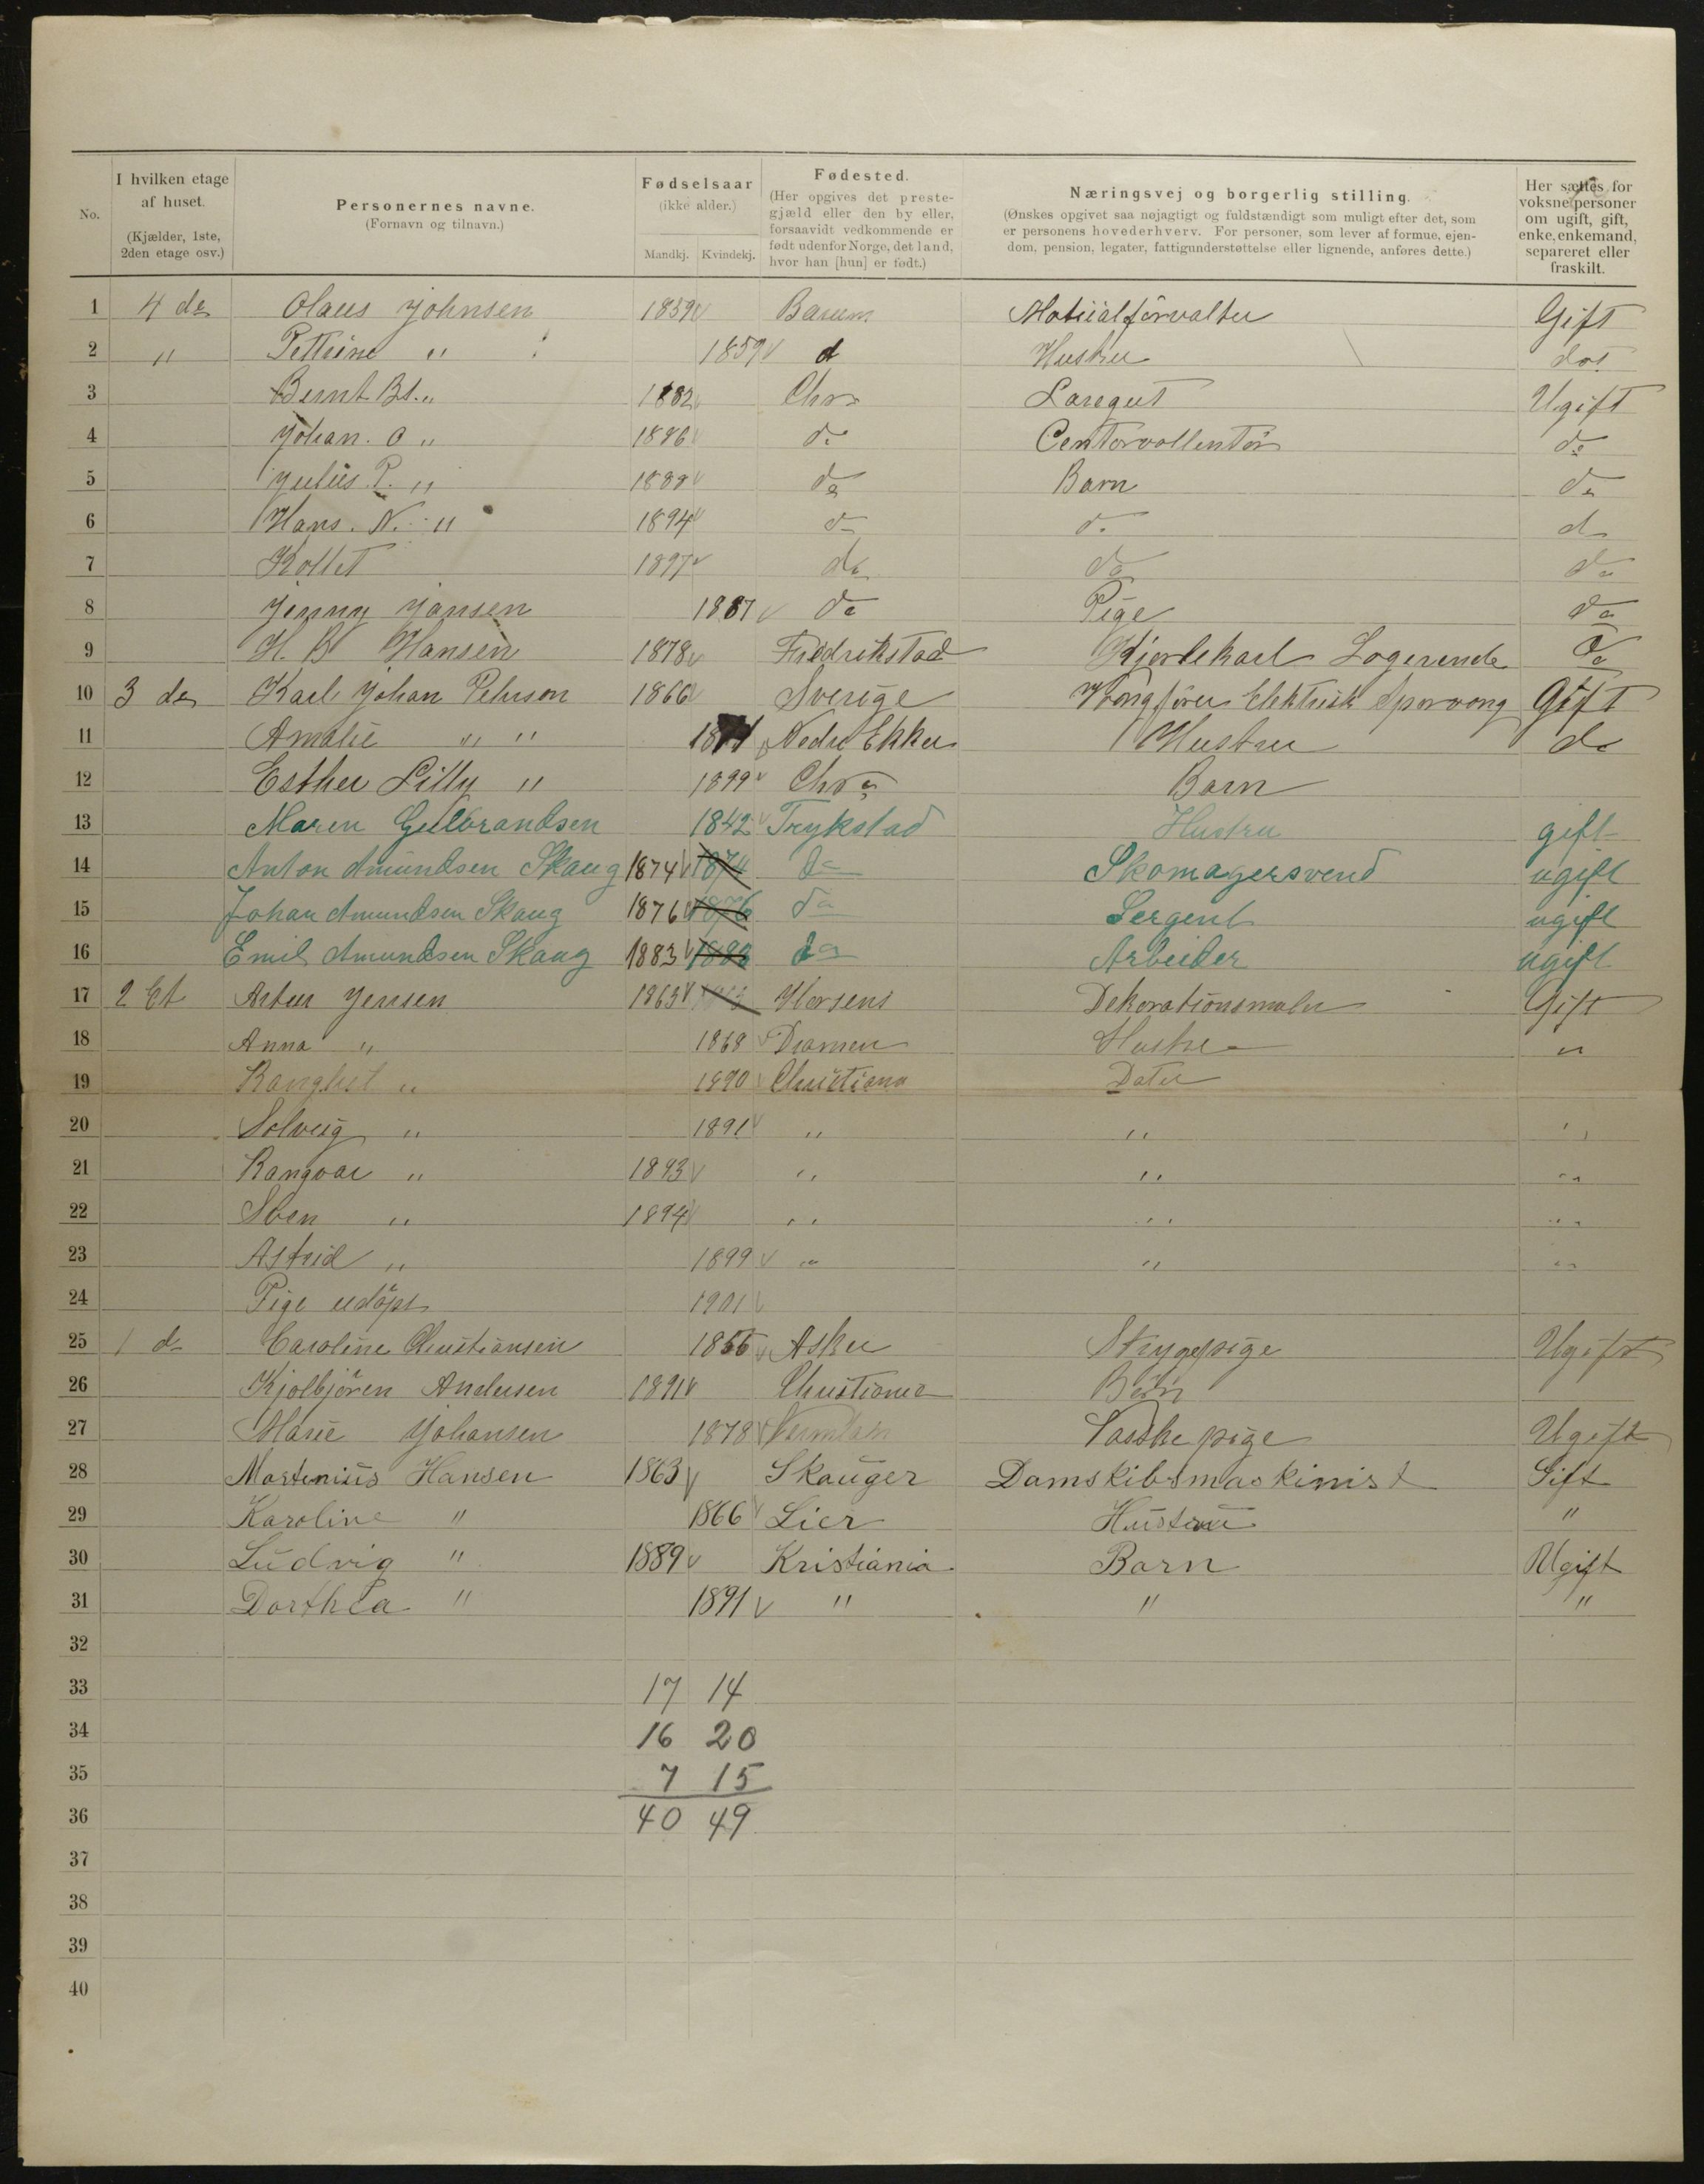 No.
I hvilken etage af huset. (Kjælder, 1ste, 2den etage osv.)
Personernes navne. (Fornavn og tilnavn.)
Fødselsaar (ikke alder.) Mandkj. Kvindekj.
Fødested. (Her opgives det prestegjæld eller den by eller, forsaavidt vedkommende er født udenfor Norge, det land, hvor han [hun] er født.)
Næringsvej og borgerlig stilling. (Ønskes opgivet saa nøjagtigt og fuldstændigt som muligt efter det, som er personens hovederhverv. For personer, som lever af formue, ejendom, pension, legater, fattigunderstøttelse eller lignende, anføres dette.)
Her sættes for voksne personer om ugift, gift, enke, enkemand, separeret eller fraskilt.
1 4 do Olaus Johnsen 1859 Barum Gift
2 " Petterine " 1859 d Hustru do
3 Bernt " 1882 Chra Ugift
4 Johan. O " 1886 do do
5 Julius. P. " 1889 do Barn do
6 Hans. N. " 1894 do do do
7 1897 do do do
8 Jenny Jansen 1881 do Pige do
9 H. B Hansen 1878 Fredrikstad Kjørekarl Logerende do
10 3 do Karl Johan Pehrson 1866 Sverige Vongfører Elektrisk Sporvong Gift
11 Amalie " " Nedre Ekker Hustru do
12 Esther Lilly " 1899 Chra Barn
13 Maren Gulbrandsen 1842 Trykstad Hustru gift
14 Anton Amundsen Skaug 1874 1874 do Skomagersvend ugift
15 Johan Amundsen Skaug 1876 1876 do Sergent ugift
16 Emil Amundsen Skaug 1883 1883 do Arbeider ugift
17 2 Et Artur Jensen 1863 1863 Horsens Dekorationsmaler Gift
18 Anna " 1868 Dramen Hustru "
19 Ranghil " 1890 Christiana Dater
20 Solveig " 1891 " " "
21 Rangvar " 1893 " " "
22 Sven " 1894 " " "
23 Astrid " 1899 " " "
24 Pige udöpt 1901
25 1 do Caroline Christiansen 1856 Asker Strygepige Ugift
26 Kjolbjören Andersen 1891 Christiania Børn
27 Marie Johansen 1878 Vaskepige Ugift
28 Martinius Hansen 1863 Skauger Damskibsmaskinist Gift
29 Karoline " 1866 Lier Hustru "
30 Ludvig " 1889 Kristiania Barn Ugift
31 Dorthea " 1891 " " "
32
33 17 14
34 16 20
35 7 15
36 40 49
37
38
39
40